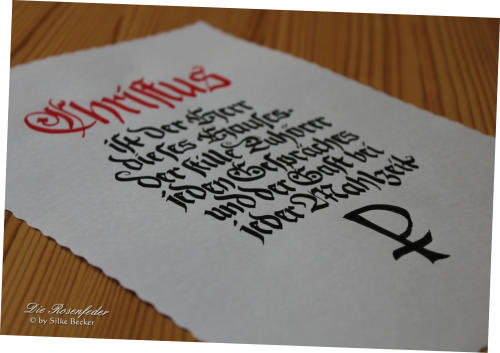 Christus
ist der Herr
dieses Hauses.
der stille Zuhörer
jeden Gespräches
und der Gast bei
jeder Mahlzeit
Die Rosenfeder
© by Silke Becker